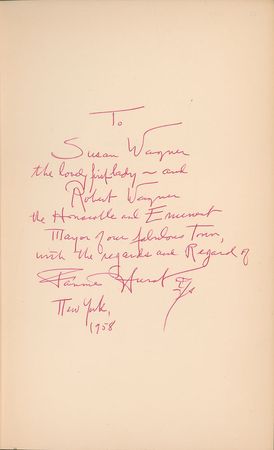 To
Susan Wagner
the lovely first lady ~ and
Robert Wagner
the Honorable and Eminent
Mayor of our fabulous Town,
with the regards and Regard of
Fannie Hurst
New York,
1958